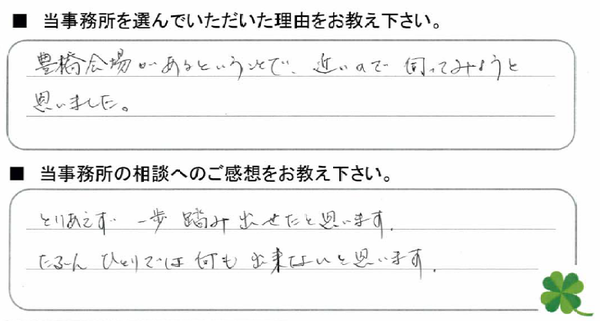 ■ 当事務所を選んでいただいた理由をお教え下さい。
豊橋会場があるということで、近いので伺ってみようと
思いました。
■ 当事務所の相談へのご感想をお教え下さい。
とりあえず 一歩 踏み出せたと思います。
たぶん ひとりでは 何も 出来ないと思います。